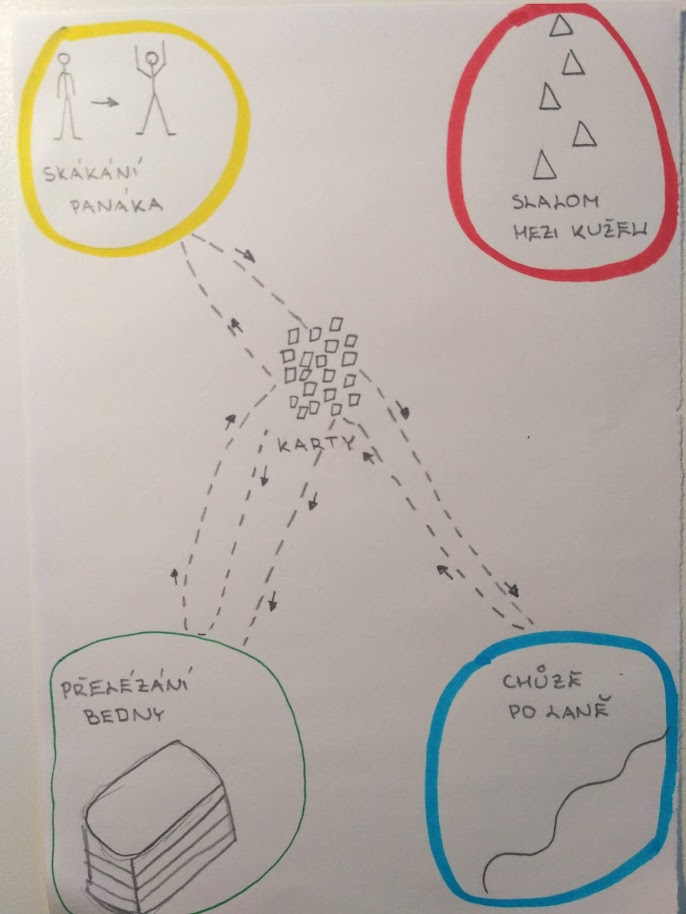 SKÁKÁNÍ
PANÁKA
SLALOM
MEZI KUŽELI
KARTY
PŘELÉZÁNÍ
BEDNY
CHŮZE
PO LANĚ